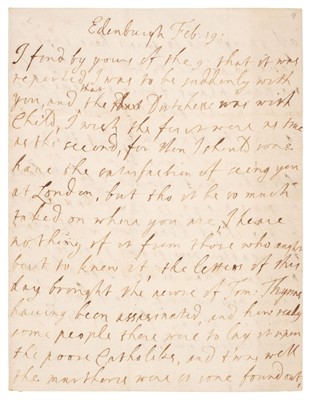 Edenburgh Feb: 19:
I find by yours of the 9, that it was
reported I was to be suddenly with
you, and that the Dutchess was with
Child, I wish the first were as true
as the second, for then I should soone
have the satisfaction of seing you
at London, but tho it be so much
talked on where you are, I heare
nothing of it from those who ought
best to know it, the letters of this
day brought the newse of Tom: Thynns
having been assasinated, and how ready
some people there were to lay it upon
the poore Catholikes, and t'was well
the murtherers were so sone found out,